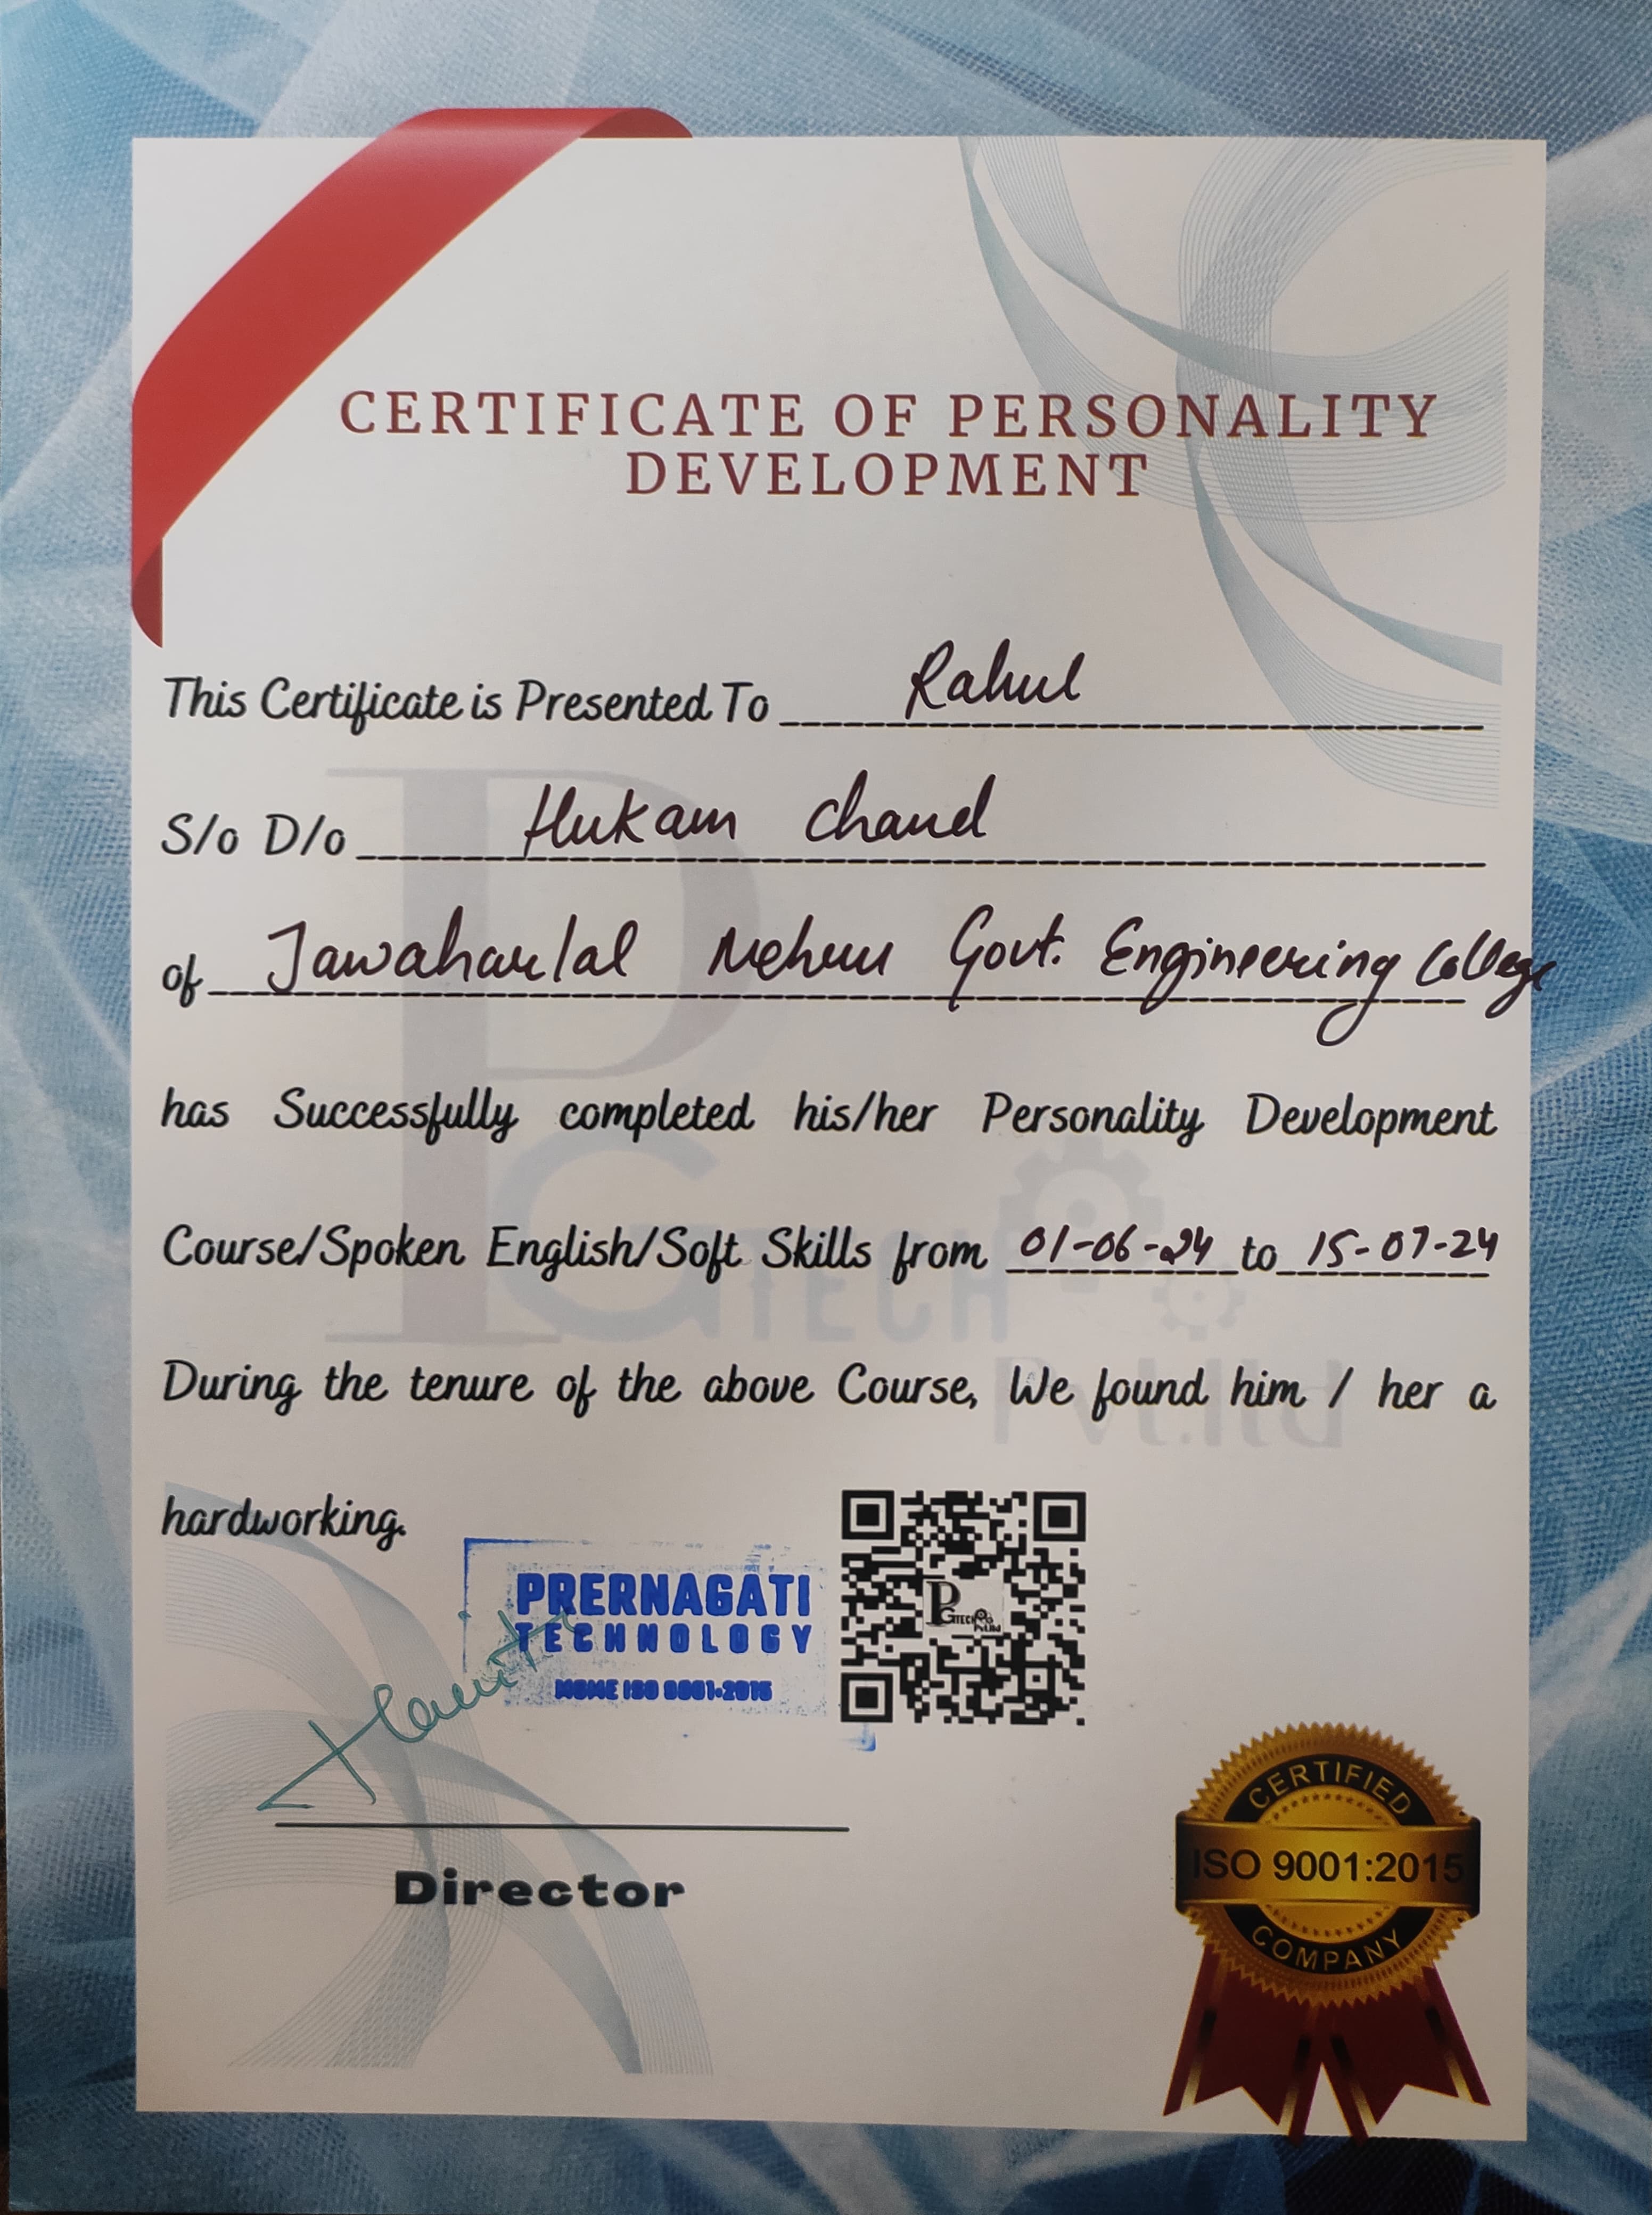 CERTIFICATE OF PERSONALITY
DEVELOPMENT
This Certificate is Presented To Rahul
S/o D/o Hukam Chand
of Jawaharlal Nehru Govt. Engineering College
has Successfully completed his/her Personality Development
Course/Spoken English/Soft Skills from 01-06-24 to 15-07-24
During the tenure of the above Course, We found him / her a
hardworking.
PG TECH
Pvt.ltd
PRERNAGATI
TECHNOLOGY
MSME ISO 9001:2015
PGTECH
Pvt.ltd
Director
CERTIFIED
ISO 9001:2015
COMPANY